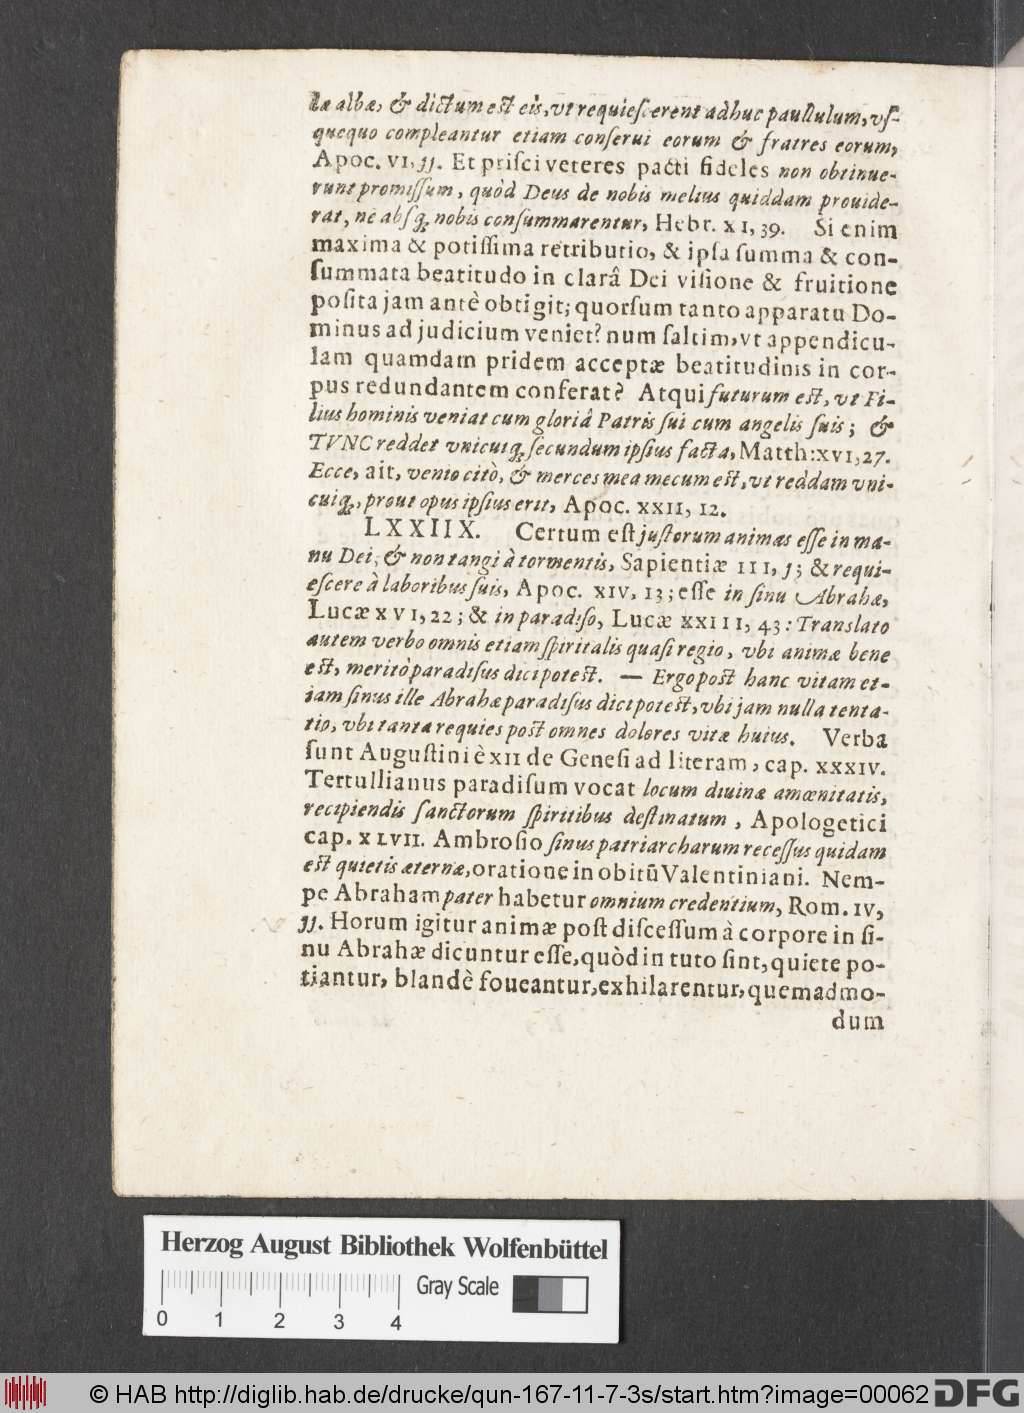 læ albæ, & dictum est eis, vt requiescerent adhuc paullulum, vs-
quequo compleantur etiam conserui eorum & fratres eorum,
Apoc. VI, jj. Et prisci veteres pacti fideles non obtinue-
runt promissum, quòd Deus de nobis melius quiddam prouide-
rat, ne absq; nobis consummarentur, Hebr. XI, 39. Si enim
maxima & potissima retributio, & ipsa summa & con-
summata beatitudo in clarâ Dei visione & fruitione
posita jam antè obtigit; quorsum tanto apparatu Do-
minus ad judicium veniet? num saltim, vt appendicu-
lam quamdam pridem acceptæ beatitudinis in cor-
pus redundantem conferat? Atqui futurum est, vt Fi-
lius hominis veniat cum gloriâ Patris sui cum angelis suis; &
TVNC reddet vnicuiq; secundum ipsius facta, Matth: XVI, 27.
Ecce, ait, venio citò, & merces mea mecum est, vt reddam vni-
cuiq;, prout opus ipsius erit, Apoc. XXII, 12.
LXXIIX. Certum est justorum animas esse in ma-
nu Dei, & non tangi à tormentis, Sapientiæ III, j; & requi-
escere à laboribus suis, Apoc. XIV, 13; esse in sinu Abrahæ,
Lucæ XVI, 22; & in paradiso, Lucæ XXIII, 43: Translato
autem verbo omnis etiam spiritalis quasi regio, vbi animæ bene
est, meritò paradisus dici potest. — Ergo post hanc vitam et-
iam sinus ille Abrahæ paradisus dici potest, vbi jam nulla tenta-
tio, vbi tanta requies post omnes dolores vitæ huius. Verba
sunt Augustini è XII de Genesi ad literam, cap. XXXIV.
Tertullianus paradisum vocat locum diuinæ amœnitatis,
recipiendis sanctorum spiritibus destinatum, Apologetici
cap. XLVII. Ambrosio sinus patriarcharum recessus quidam
est quietis æternæ, oratione in obitū Valentiniani. Nem-
pe Abraham pater habetur omnium credentium, Rom. IV,
jj. Horum igitur animæ post discessum à corpore in si-
nu Abrahæ dicuntur esse, quòd in tuto sint, quiete po-
tiantur, blandè foueantur, exhilarentur, quemadmo-
dum
Herzog August Bibliothek Wolfenbüttel
0 1 2 3 4 Gray Scale
© HAB http://diglib.hab.de/drucke/qun-167-11-7-3s/start.htm?image=00062 DFG